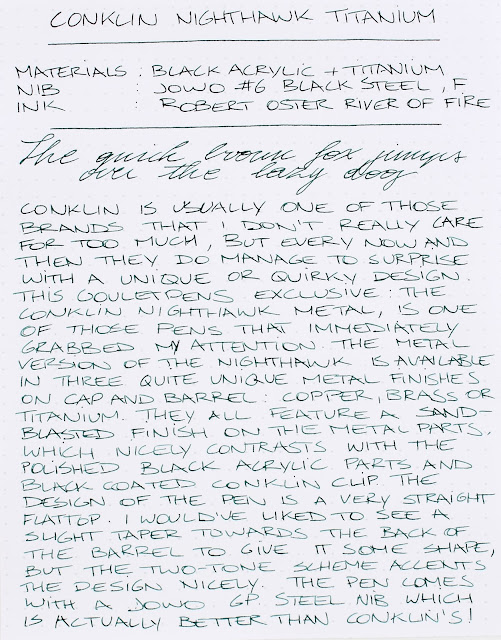 CONKLIN NIGHTHAWK TITANIUM
MATERIALS : BLACK ACRYLIC + TITANIUM
NIB : JOWO #6 BLACK STEEL, F
INK : ROBERT OSTER RIVER OF FIRE
The quick brown fox jumps
over the lazy dog
CONKLIN IS USUALLY ONE OF THOSE
BRANDS THAT I DON'T REALLY CARE
FOR TOO MUCH, BUT EVERY NOW AND
THEN THEY DO MANAGE TO SURPRISE
WITH A UNIQUE OR QUIRKY DESIGN.
THIS GOULETPENS EXCLUSIVE : THE
CONKLIN NIGHTHAWK METAL, IS ONE
OF THOSE PENS THAT IMMEDIATELY
GRABBED MY ATTENTION. THE METAL
VERSION OF THE NIGHTHAWK IS AVAILABLE
IN THREE QUITE UNIQUE METAL FINISHES
ON CAP AND BARREL: COPPER, BRASS OR
TITANIUM. THEY ALL FEATURE A SAND-
BLASTED FINISH ON THE METAL PARTS,
WHICH NICELY CONTRASTS WITH THE
POLISHED BLACK ACRYLIC PARTS AND
BLACK COATED CONKLIN CLIP. THE
DESIGN OF THE PEN IS A VERY STRAIGHT
FLATTOP. I WOULD'VE LIKED TO SEE A
SLIGHT TAPER TOWARDS THE BACK OF
THE BARREL TO GIVE IT SOME SHAPE,
BUT THE TWO-TONE SCHEME ACCENTS
THE DESIGN NICELY. THE PEN COMES
WITH A JOWO GP STEEL NIB WHICH
IS ACTUALLY BETTER THAN CONKLIN'S!